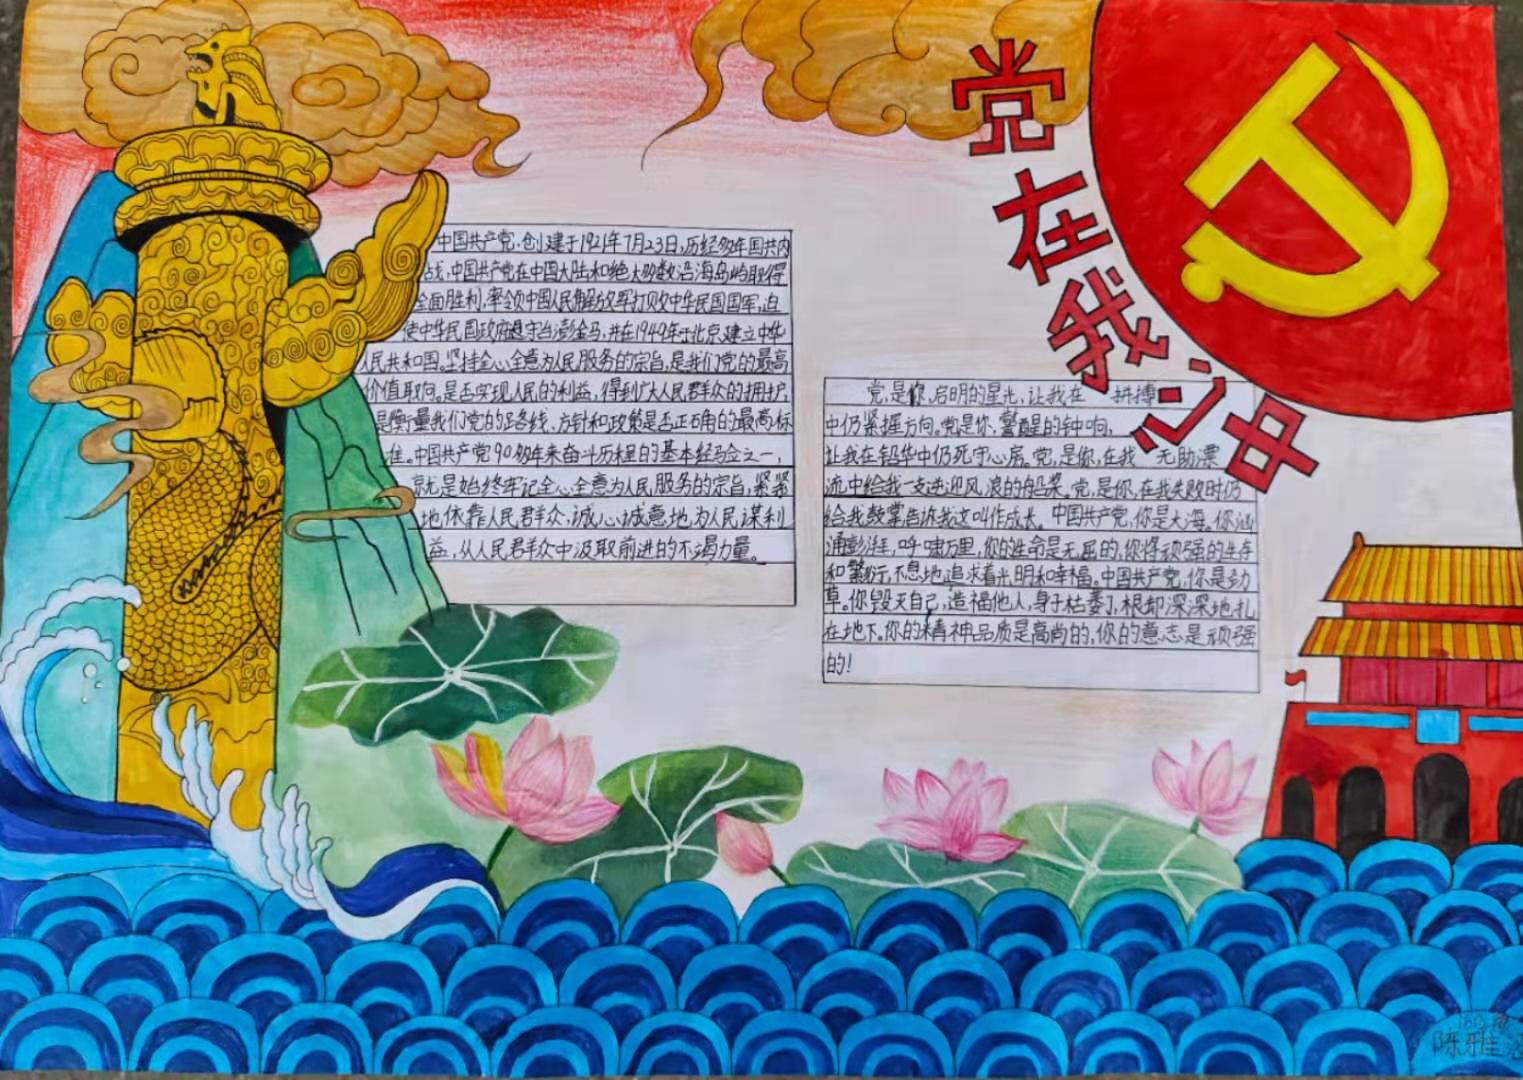 党在我心中
中国共产党,创建于1921年7月23日,历经多年国共内
战,中国共产党在中国大陆和绝大多数沿海岛屿取得
全面胜利,率领中国人民解放军打败中华民国国军,迫
使中华民国政府退守台澎金马,并在1949年于北京建立中华
人民共和国。坚持全心全意为人民服务的宗旨,是我们党的最高
价值取向。是否实现人民的利益,得到广大人民群众的拥护,
是衡量我们党的路线、方针和政策是否正确的最高标
准。中国共产党90多年来奋斗历程的基本经验之一,
就是始终牢记全心全意为人民服务的宗旨,紧紧
地依靠人民群众,诚心诚意地为人民谋利
益,从人民群众中汲取前进的不竭力量。
党,是你,启明的星光,让我在 拼搏
中仍紧握方向。党是你,警醒的钟响,
让我在铅华中仍死守心房。党,是你,在我 无助漂
流中给我一支迎风浪的船桨。党,是你,在我失败时仍
给我鼓掌告诉我这叫作成长。中国共产党,你是大海。你汹
涌彭湃,呼啸万里,你的生命是无屈的,你将顽强的生存
和繁衍,不息地追求着光明和幸福。中国共产党,你是劲
草。你毁灭自己,造福他人,身子枯萎了,根却深深地扎
在地下。你的精神品质是高尚的,你的意志是顽强
的!
陈雅